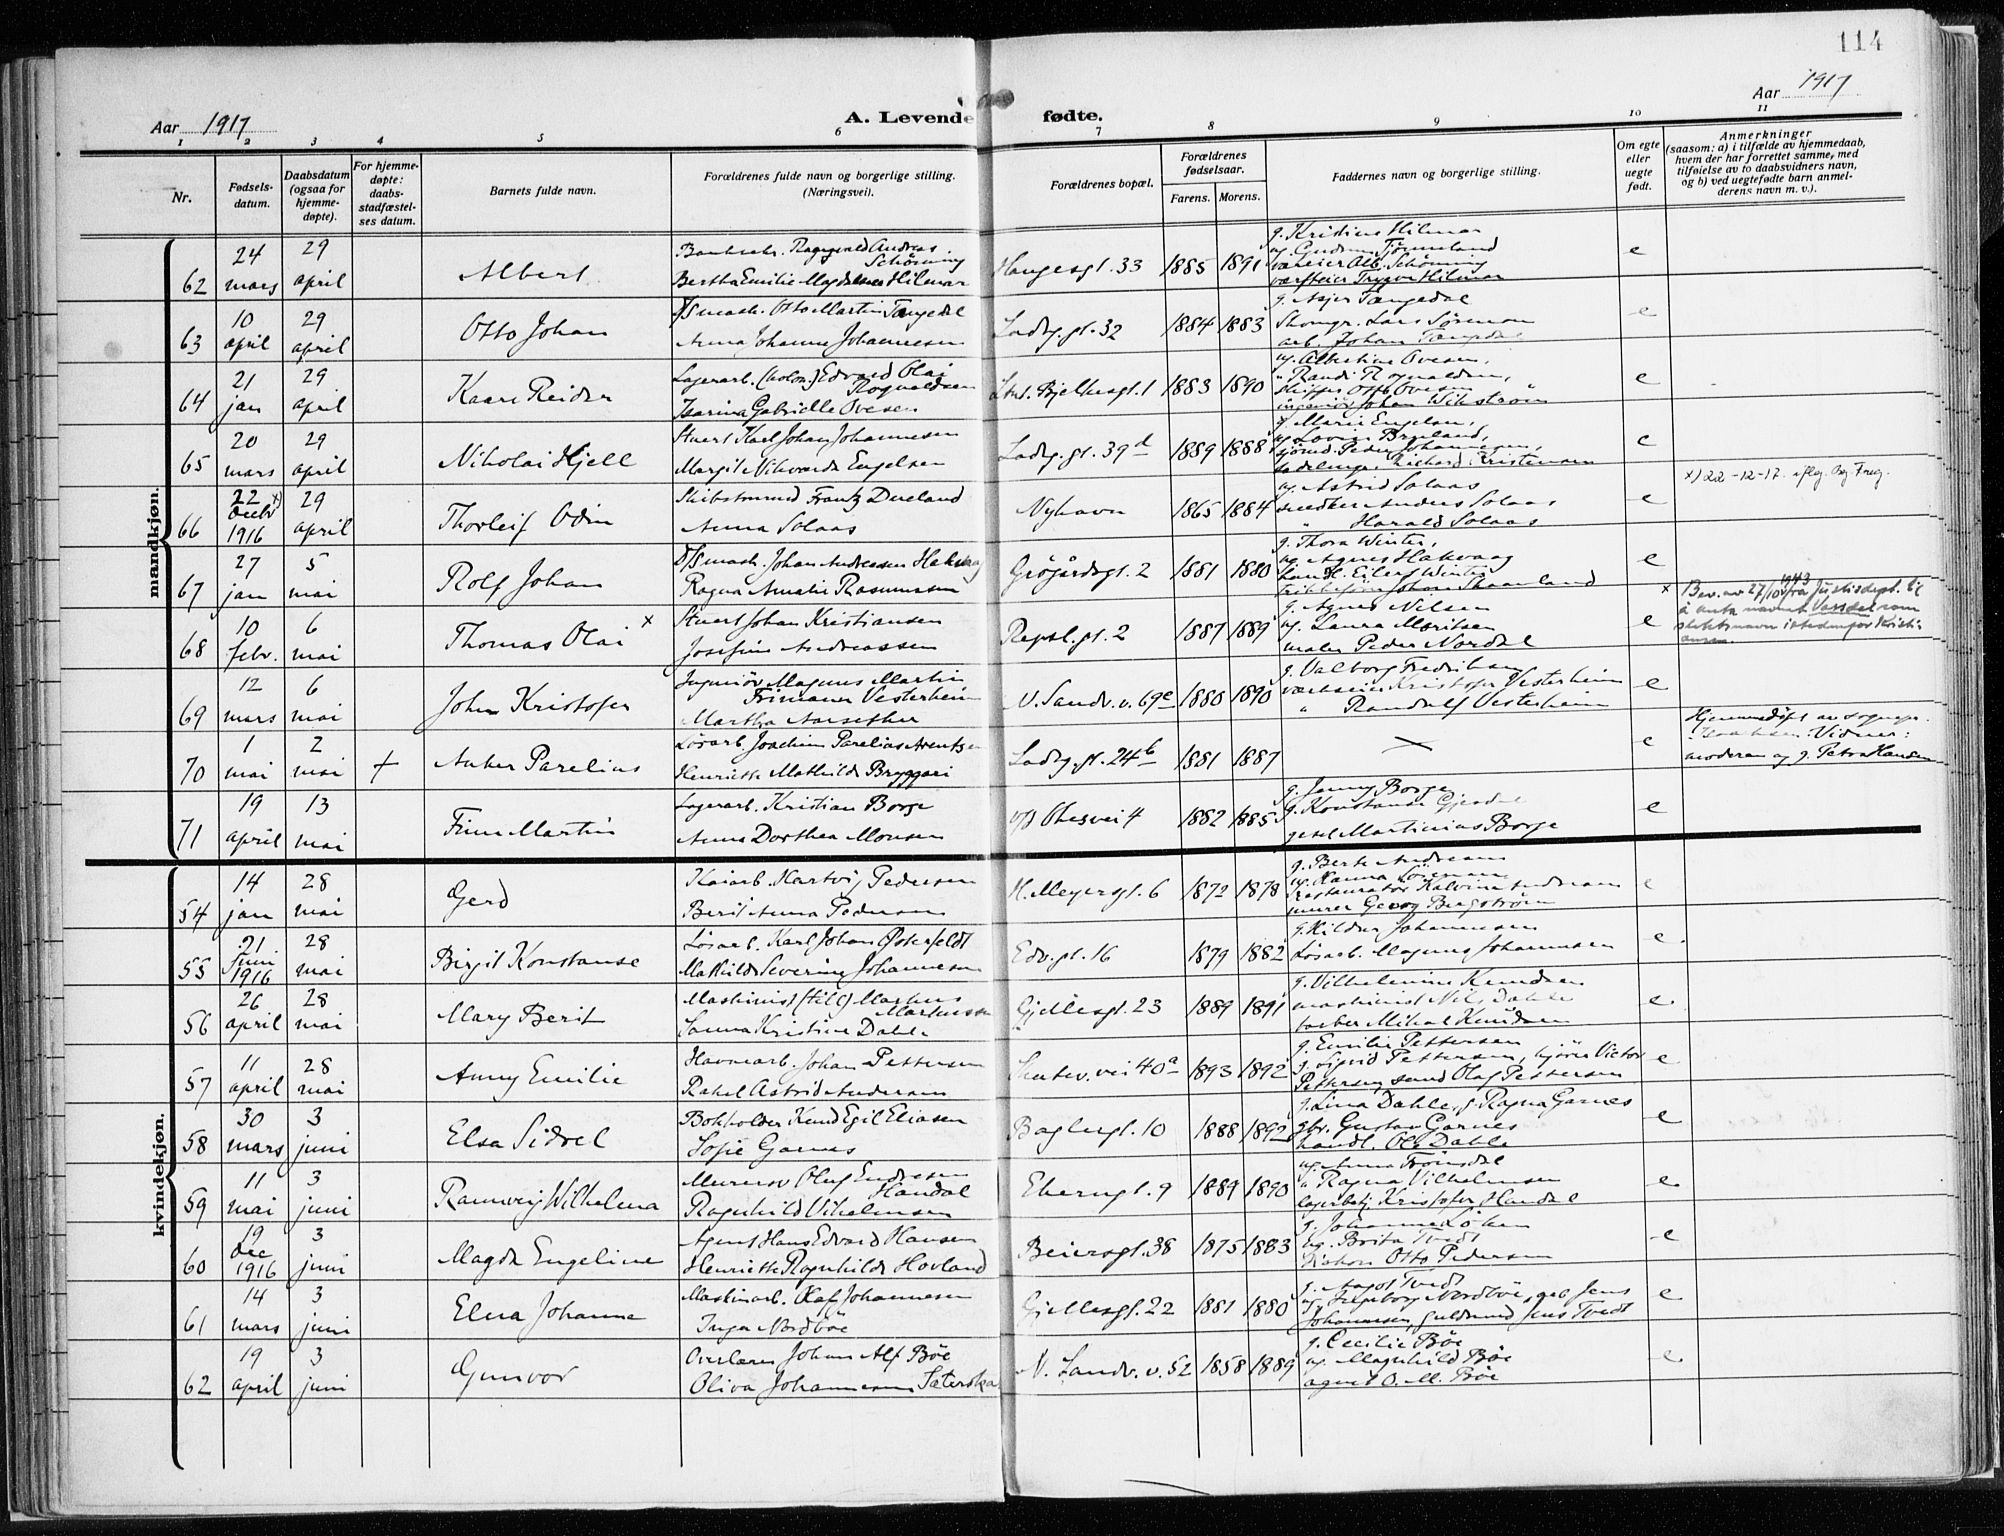 114
Aar 1917
A. Levende fødte.
Aar 1917
1 2 3 4 5 6 7 8 9 10 11
Nr.
Fødsels-
datum.
Daabsdatum
(ogsaa for
hjemme-
døpte).
For hjemme-
døpte:
daabs-
stadfæstel-
ses datum.
Barnets fulde navn.
Forældrenes fulde navn og borgerlige stilling.
(Næringsvei).
Forældrenes bopæl.
Forældrenes
fødselsaar.
Farens. Morens.
Faddernes navn og borgerlige stilling.
Om egte
eller
uegte
født.
Anmerkninger
(saasom: a) i tilfælde av hjemmedaab,
hvem der har forrettet samme, med
tilføielse av to daabsvidners navn,
og b) ved uegtefødte barn anmel-
derens navn m. v.).
mandkjøn.
62 24 mars 29 april Albert
Ragnvald Andreas
Schönning
Bertha Emilie Magdalene Hilmar
Haugesgt. 33 1885 1891
g. Kristine Hilmar
ug. Gudrun Tønneland
Alb. Schönning
Trygve Hilmar
e
63 10 april 29 april Otto Johan
D/S mask. Otto Martin Tangedal
Anna Johanne Johannesen
Ladeg. gt. 32 1884 1883
g. Asjer Tangedal
Lars Sörensen
arb. Johan Tangedal
e
64 21 jan 29 april Kaare Reidar
Lagerarb. (kolon.) Edvard Olai
Rognaldsen
Isarina Gabrielle Ovesen
Bjelkesgt. 1 1883 1890
ug. Albertine Ovesen,
" Randi Rognaldsen,
skipper Otto Ovesen
ingeniör Johan Wikström
e
65 20 mars 29 april Nikolai Hjell
Stuert Karl Johan Johannesen
Margit Nikoarda Engelsen
Ladeg. gt. 39d 1889 1888
g. Marie Engelsen,
ug. Lovise Bryland,
sjömd. Peder Johannesen,
Richard Kristensen
e
66 22 x) decbr 1916 29 april Thorleif Odin
Skibstömmermd Frantz Dueland
Anna Solaas
Nyhavn 1865 1884
ug. Astrid Solaas
snedker Anders Solaas
" Harald Solaas
e
x) 22-12-17. iflg. Bg. Freg.
67 27 jan 5 mai Rolf Johan
D/S mask. Johan Andreassen Hakvaag
Ragna Amalie Rasmussen
Grögårdsgt. 2 1881 1880
g. Thora Winter,
ug. Agnes Hakvaag
handl. Eilert Winter
Johan Skaanland
e
68 10 febr. 6 mai Thomas Olai x
Stuert Johan Kristiansen
Josefine Andreassen
Repsl. gt. 2 1887 1889
g. Agnes Nilsen
ug. Laura Moritsen
maler Peder Nordal
e
x Bev. av 27/10 1943 fra Justisdept. til
å anta navnet Vandel som
slektsnavn istedenfor Kristi-
ansen
69 12 mars 6 mai John Kristofer
Ingeniör Magnus Martin
Frimann Vesterheim
Martha Aarsether
N. Sandv. v. 69e 1880 1890
g. Valborg Fredriksen
Kristofer Vesterheim
" Randulf Vesterheim
e
70 1 mai 2 mai + Anker Parelius
Lösarb. Joachim Parelius Arentzen
Henriette Mathilde Bryggari
Ladeg. gt. 24b 1881 1887
×
e
Hjemmedöpt av sognepr.
Vidner:
moderen og g. Petra Hansen
71 19 april 13 mai Finn Martin
Lagerarb. Kristian Borge
Anna Dorthea Monsen
1882 1885
g. Jenny Borge
g. Konstanse Gjesdal
Martinius Borge
e
kvindekjøn.
54 14 jan 28 mai Gerd
Kaiarb. Hartvig Pedersen
Berit Anna Pedersen
H. Meyersgt. 6 1872 1878
g. Berte Andresen
ug. Hanna Sörensen
restauratör Kalvina Andresen
murer Georg Bergström
e
55 21 Juni 1916 28 mai Birgit Konstanse
Lösarb. Karl Johan Österfeldt
Mathilde Severine Johannesen
Edv. gt. 16 1879 1882
g. Hilda Johannesen
Lösarb. Magnus Johannesen
e
56 26 april 28 mai Mary Berit
Maskinist (till) Markus
Martinssen
Sanna Kristine Dahle
Gjellesgt. 23 1889 1891
g. Vilhelmine Knudsen
maskinist Nils Dahle
farver Mikal Knudsen
e
57 11 april 28 mai Anny Emilie
Havnearb. Johan Pettersen
Rakel Astrid Andersen
Skutev. vei 40a 1893 1892
g. Emilie Pettersen
g. Sigrid Pettersen, kjörer Victor
Pettersen, smed Olaf Pettersen
e
58 30 mars 3 juni Elsa Sidsel
Bokholder Knud Egil Eliasen
Sofie Garnes
Baglergt. 10 1888 1892
g. Lina Dahle, g. Ragna Garnes
gbr. Gustav Garnes
handl. Ole Dahle
e
59 11 mai 3 juni Rannveig Wilhelma
Murersv Oluf Endresen
Handal
Ragnhild Vilhelmsen
Eberngt. 9 1889 1890
ug. Anna Frömsdal
" Ragna Vilhelmsen
lagerbetj. Kristofer Handal
e
60 19 Dec 1916 3 juni Magda Engeline
Agent Hans Edvard Hansen
Henriette Ragnhilda Hovland
Beiersgt. 38 1875 1883
g. Johanne Löken
ug. Brita Tvedt
Otto Pedersen
e
61 14 mars 3 juni Elna Johanne
Maskinarb. Olaf Johannesen
Inga Nordböe
Gjellesgt. 22 1881 1880
g. Aagot Tvedt
ug. Ingeborg Nordböe, Jens
Johannesen, guldsmed Jens Tvedt
e
62 19 april 3 juni Gunvor
Overlærer Johan Alf Böe
Oliva Johannesen Sæterskar
N. Sandv. v. 52 1858 1889
g. Cecilie Böe
ug. Magnhild Böe
agent O. M. Böe
e